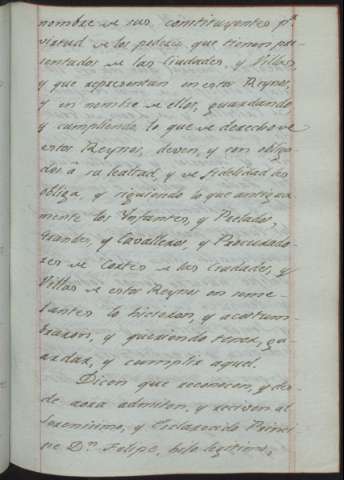 nombre de sus constituyentes pr.
virtud de los poderes que tienen pre-
sentados de las Ciudades, y Villas,
y que representan en estos Reynos,
y en nombre de ellos, guardando
y cumpliendo lo que de derecho de
estos Reynos, deven, y son obliga-
dos â su lealtad, y de fidelidad les
obliga, y siguiendo lo que antigua-
mente los Ynfantes, y Prelados,
Grandes, y Cavalleros, y Procurado-
res de Cortes de las Ciudades, y
Villas de estos Reynos en
hicieron, y acostum-
braron, y queriendo tener, gu-
ardar, y cumplir aquel.
Dicen que reconocen, y des-
de aora admiten, y reciven al
Serenisimo, y Esclarecido Princi-
pe Dn. Felipe, hijo legitimo,